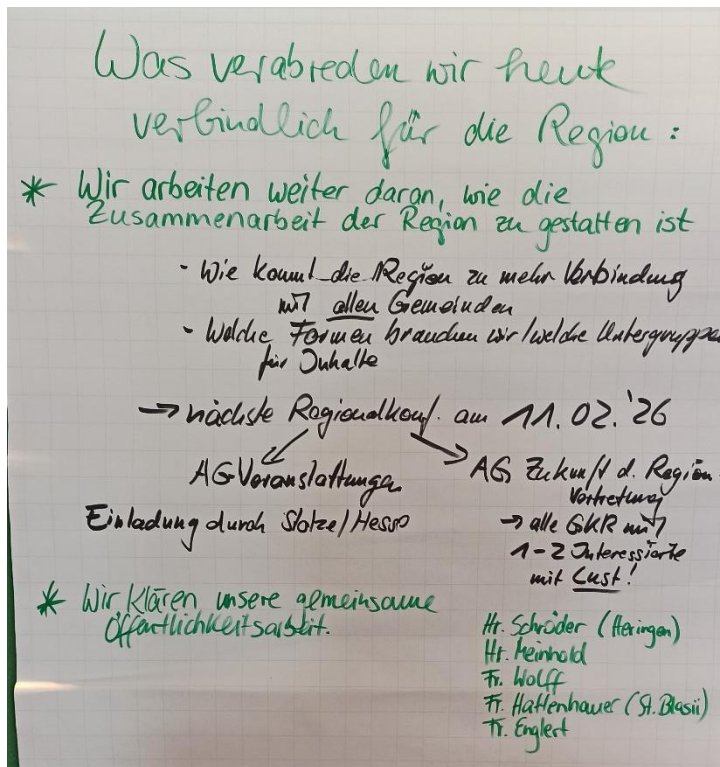 Was verabreden wir heute
verbindlich für die Region :
* Wir arbeiten weiter daran, wie die
Zusammenarbeit der Region zu gestalten ist
- Wie kommt die Region zu mehr Verbindung
mit allen Gemeinden
- Welche Formen brauchen wir / welche Untergruppen
für Inhalte
→ nächste Regionalkonf. am 11.02.'26
AG Veranstaltungen
Einladung durch Stolze/Hesse
AG Zukunft d. Region
Vertretung
→ alle GKR mit
1-2 Interessierte
mit Lust!
* Wir klären unsere gemeinsame
Öffentlichkeitsarbeit.
Hr. Schröder (Heringen)
Hr. Meinhold
Fr. Wolff
Fr. Hattenhauer (St. Blasii)
Fr. Englert